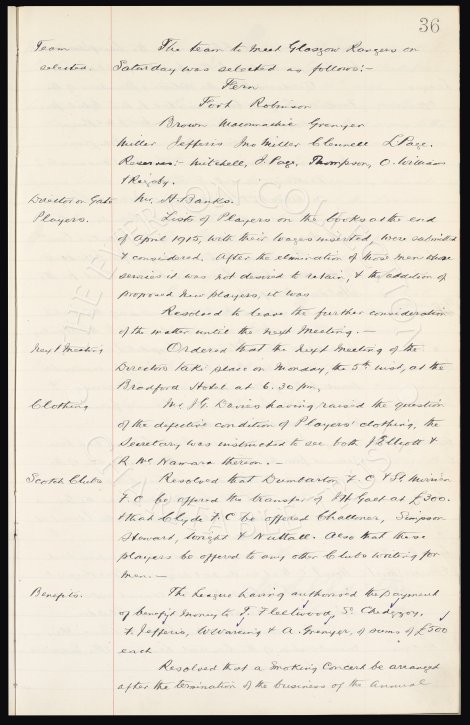 36
Team The team to meet Glasgow Rangers on
selected. Saturday was selected as follows:-
Fern
Fort Robinson
Brown Maconnachie Grenyer
Miller Jefferis Jno Miller Clennell L Page.
Reserves:- Mitchell, J. Page, Thompson, O. Williams
& Rigby.
Director on Gate Mr. H. Banks.
Players. Lists of Players on the books as the end
of April 1915, with their wages inserted, were submitted
& considered. After the elimination of those men whose
services it was not desired to retain, & the addition of
proposed new players, it was
Resolved to leave the further consideration
of the matter until the next Meeting.-
Next Meeting Ordered that the next Meeting of the
Directors take place on Monday, the 5th inst, at the
Bradford Hotel at 6.30 pm.
Clothing Mr J.G. Davies having raised the question
of the defective condition of Players' clothing, the
Secretary was instructed to see both J Elliott &
R. McNamara thereon.-
Scotch Clubs Resolved that Dumbarton F.C. & St. Mirren
F C be offered the transfer of J H Galt at £300.
& that Clyde F.C be offered Challinor, Simpson
Steward, Wright & Nuttall. Also that these
players be offered to any other Clubs writing for
men.-
Benefits. The League having authorised the payment
of benefit money to T. Fleetwood, S. Chedgzoy,
F. Jefferis, W Wareing & A. Grenyer, of sums of £500
each
Resolved that a Smoking Concert be arranged
after the termination of the business of the Annual
THE EVERTON COLLECTION